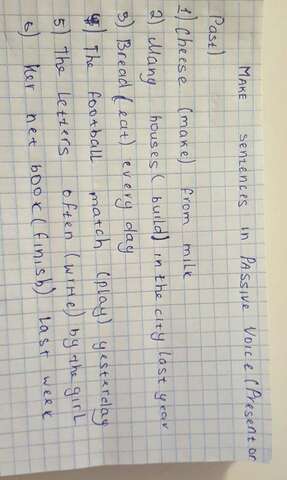 MAKE sentences in PASSIVE Voice (Present or
Past)
1) Cheese (make) from milk
2) Many houses (build) in the city last year
3) Bread (eat) every day
4) The football match (play) yesterday
5) The letters often (write) by the girl
6) Her net book (finish) last week